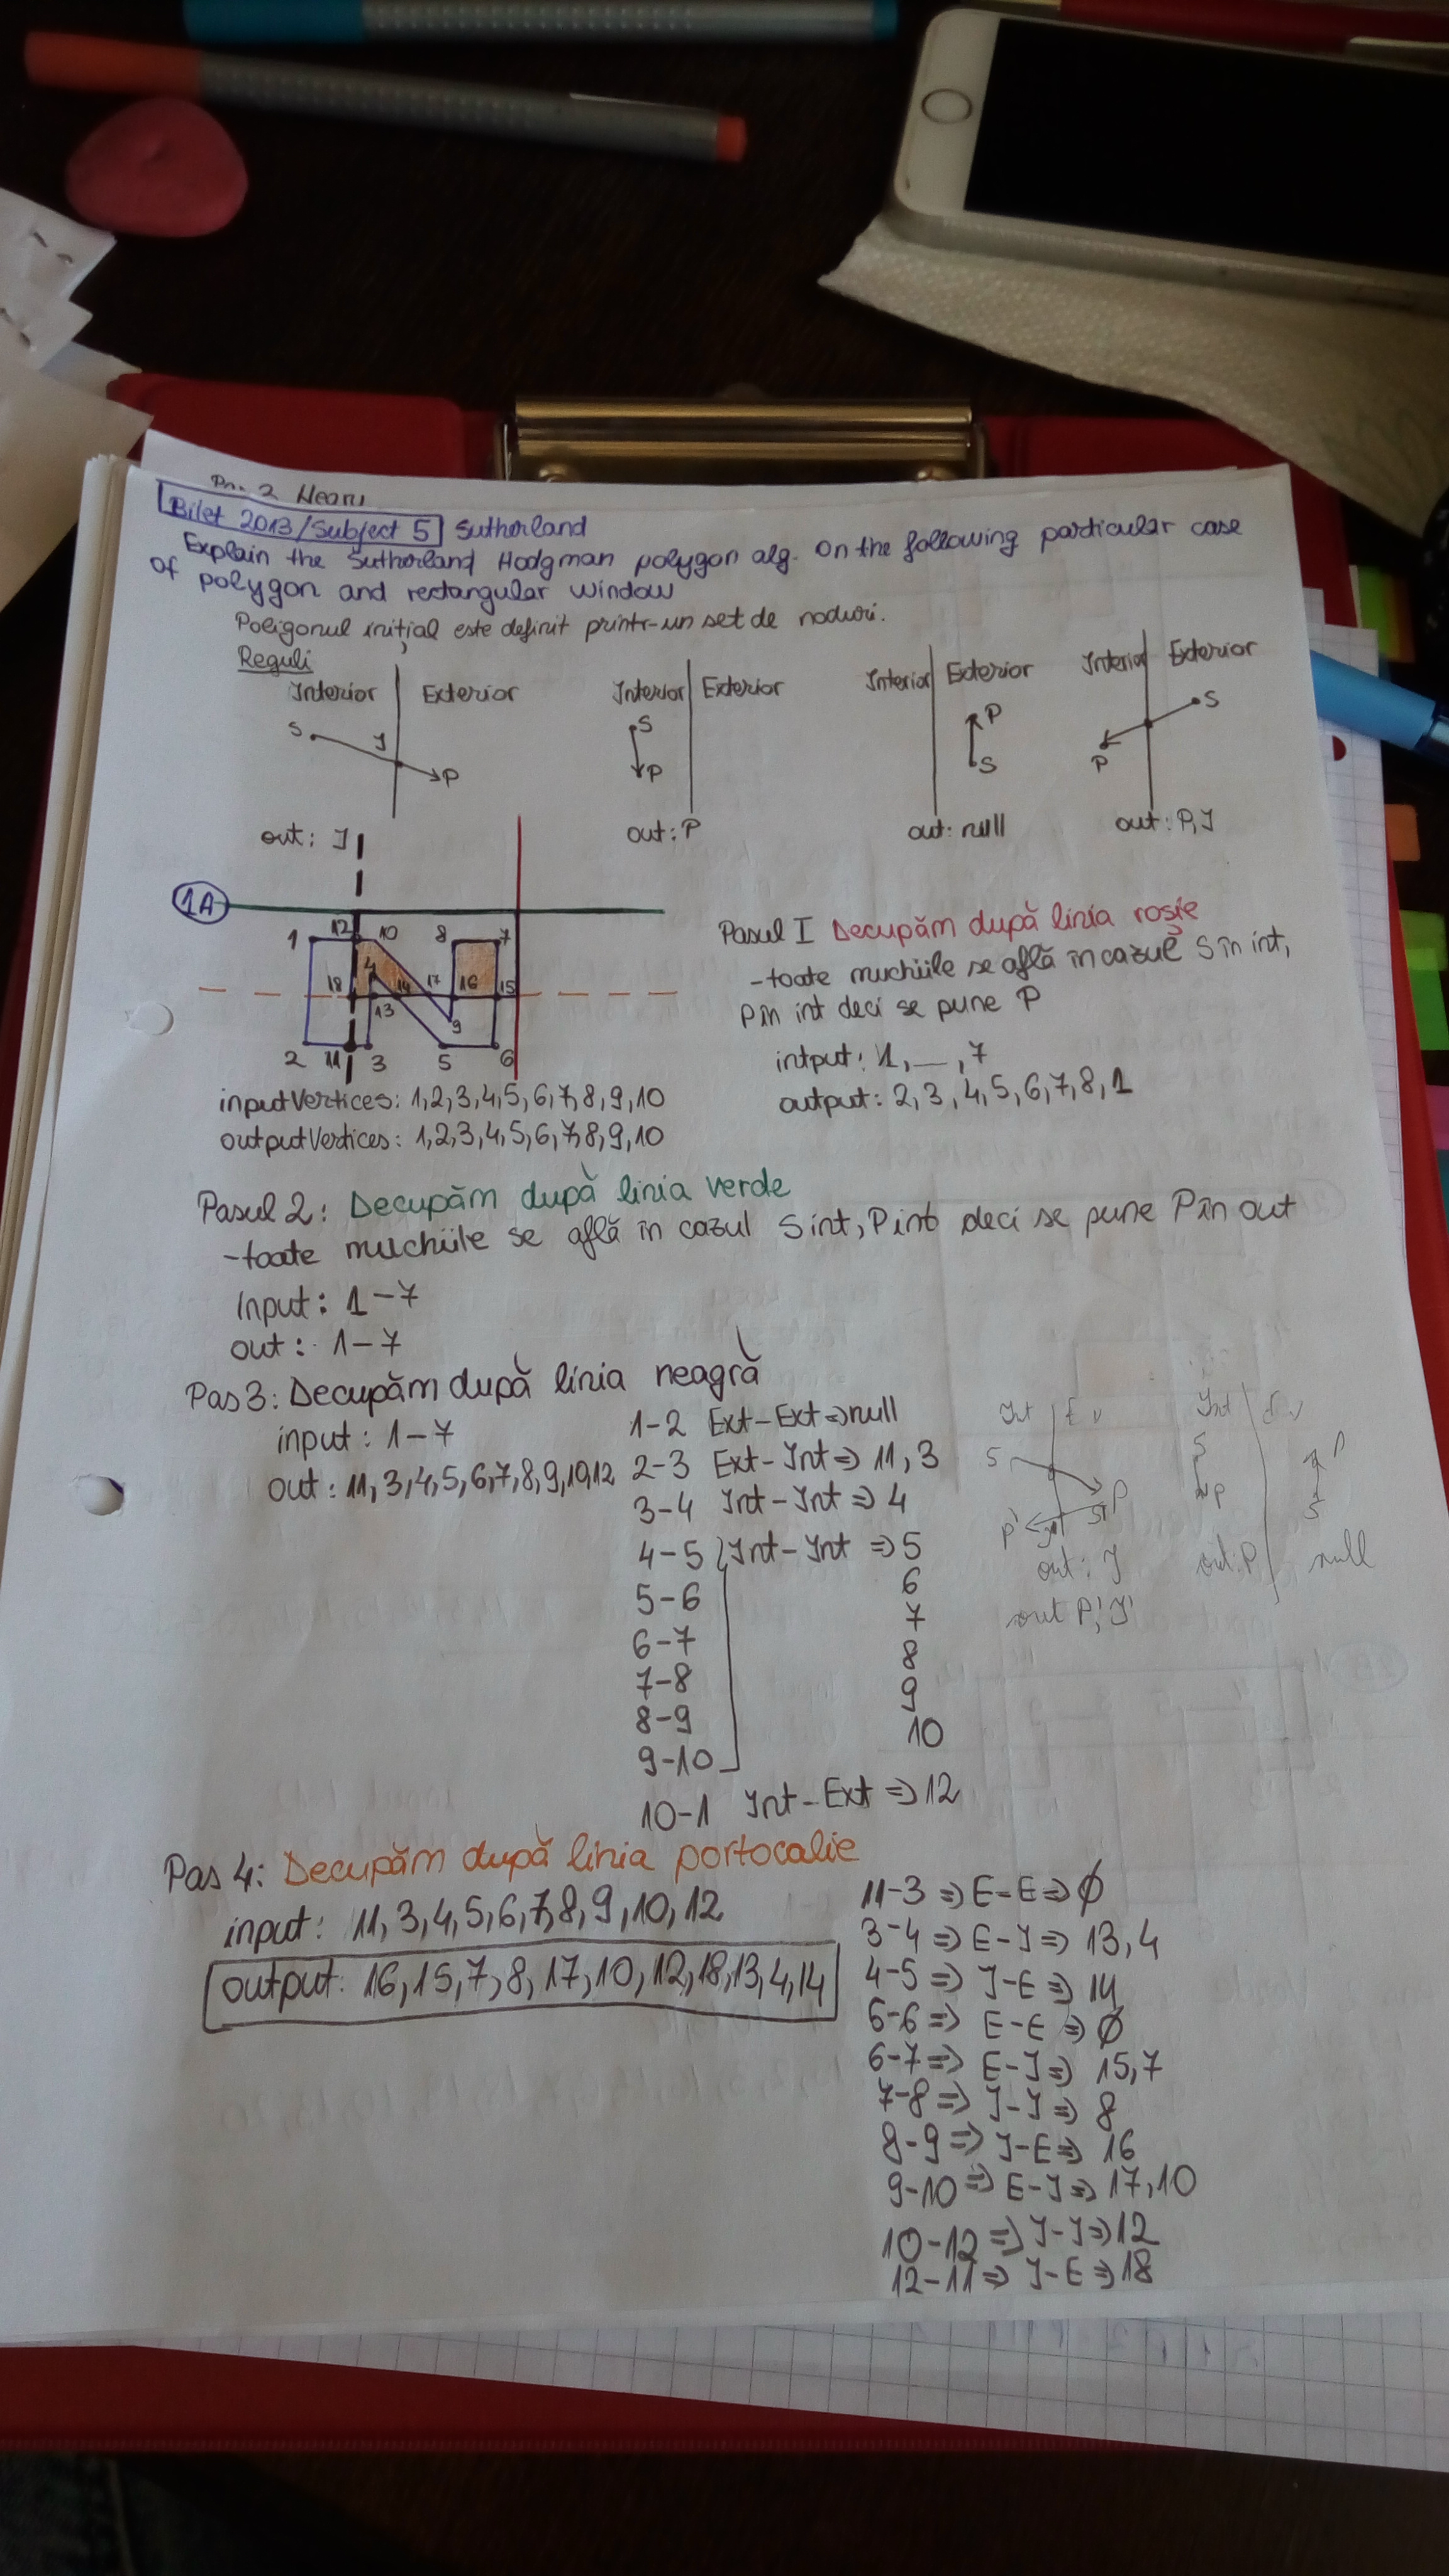 Bilet 2013/Subject 5 Sutherland
Explain the Sutherland Hodgman polygon alg. On the following particular case
of polygon and rectangular window
Poligonul inițial este definit printr-un set de noduri.
Reguli
Interior Exterior
S J P
out: J
Interior Exterior
S
P
out: P
Interior Exterior
P
S
out: null
Interior Exterior
S
P
out: P, J
1A
1 12 10 8 7
4
18 14 17 16 15
13 9
2 11 3 5 6
inputVertices: 1,2,3,4,5,6,7,8,9,10
outputVertices: 1,2,3,4,5,6,7,8,9,10
Pasul I Decupăm după linia roșie
-toate muchiile se află în cazul S în int,
P în int deci se pune P
intput: 1, _, 7
output: 2, 3, 4, 5, 6, 7, 8, 1
Pasul 2: Decupăm după linia verde
-toate muchiile se află în cazul S int, P int deci se pune P în out
Input: 1-7
out: 1-7
Pas 3: Decupăm după linia neagră
input: 1-7
out: 11, 3, 4, 5, 6, 7, 8, 9, 10, 12
1-2 Ext-Ext => null
2-3 Ext-Int => 11, 3
3-4 Int-Int => 4
4-5 Int-Int => 5
5-6 6
6-7 7
7-8 8
8-9 9
9-10 10
10-1 Int-Ext => 12
Int
S P
P' J' S'
out: J
out P', J'
Int
S
P
out: P
P
S
null
Pas 4: Decupăm după linia portocalie
input: 11, 3, 4, 5, 6, 7, 8, 9, 10, 12
output: 16, 15, 7, 8, 17, 10, 12, 18, 13, 4, 14
11-3 => E-E => ∅
3-4 => E-J => 13, 4
4-5 => J-E => 14
6-6 => E-E => ∅
6-7 => E-J => 15, 7
7-8 => J-J => 8
8-9 => J-E => 16
9-10 => E-J => 17, 10
10-12 => J-J => 12
12-11 => J-E => 18